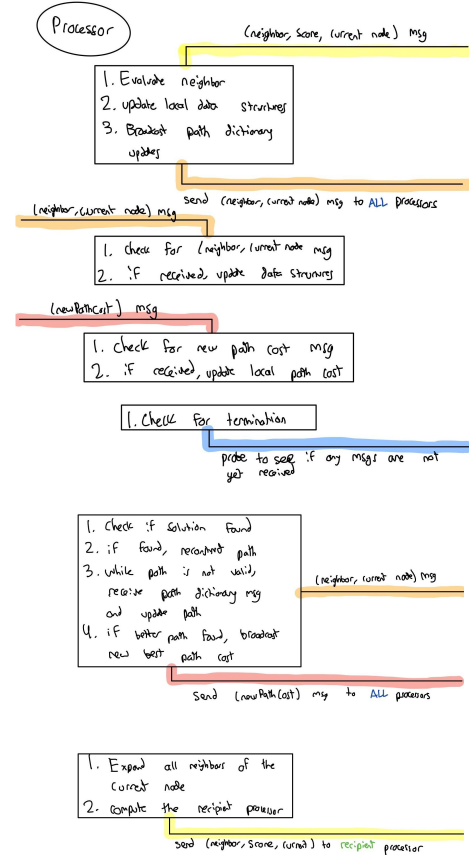 Processor
(neighbor, Score, current node) msg
1. Evaluate neighbor
2. update local data structures
3. Broadcast path dictionary
updates
send (neighbor, current node) msg to ALL processors
(neighbor, current node) msg
1. check for (neighbor, current node msg
2. if received, update data structures
(newPathCost) msg
1. Check for new path cost msg
2. if received, update local path cost
1. Check for termination
probe to see if any msgs are not
yet received
1. Check if solution found
2. if found, reconstruct path
3. while path is not valid,
receive path dictionary msg
and update path
4. if better path found, broadcast
new best path cost
(neighbor, current node) msg
send (newPathCost) msg to ALL processors
1. Expand all neighbors of the
current node
2. compute the recipient processor
send (neighbor, score, current) to recipient processor